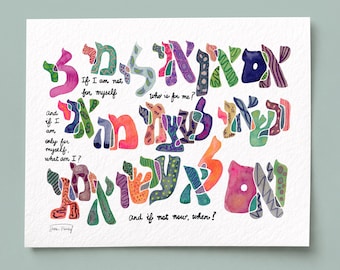 אם אין אני לי מי לי
If I am not
for myself
who is for me?
וכשאני לעצמי מה אני
And
if I
am
only for
myself,
what am I?
ואם לא עכשיו אימתי
And if not now, when?